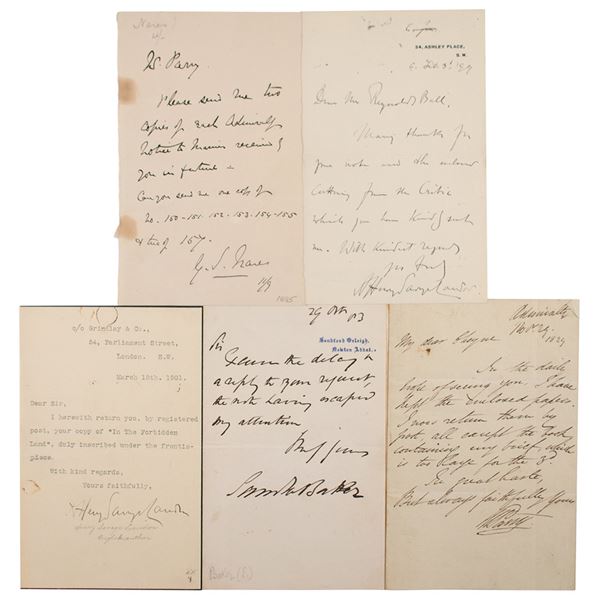 Nares
Mr. Parry
Please send me two
copies of each Admiralty
Notice to Mariners received by
you in future -
Can you send me one copy of
No. 150-151-152-153-154-155
& two of 157.
G. S. Nares
1885
34, ASHLEY PLACE,
S.W.
Dear Mr Reynolds Ball,
Many thanks for
your note and the enclosed
cutting from the Critic
which you have kindly sent
me. With kindest regards
A Henry Savage Landor
c/o Grindlay & Co.,
54, Parliament Street,
London. S.W.
March 18th, 1901.
Dear Sir,
I herewith return you, by registered
post, your copy of "In The Forbidden
Land", duly inscribed under the frontis-
piece.
With kind regards,
Yours faithfully,
A Henry Savage Landor
Henry Savage Landor
English author
29 Oct 83
Sandford Orleigh,
Newton Abbot.
Sir
Excuse the delay in
a reply to your request,
the note having escaped
my attention
Sam W Baker
Baker (S.)
Admiralty
1829
My dear
In the daily
hope of seeing you, I have
kept the enclosed papers.
I now return them by
post, all except the book
containing my brief, which
is too large for the
In great haste,
But always faithfully yours